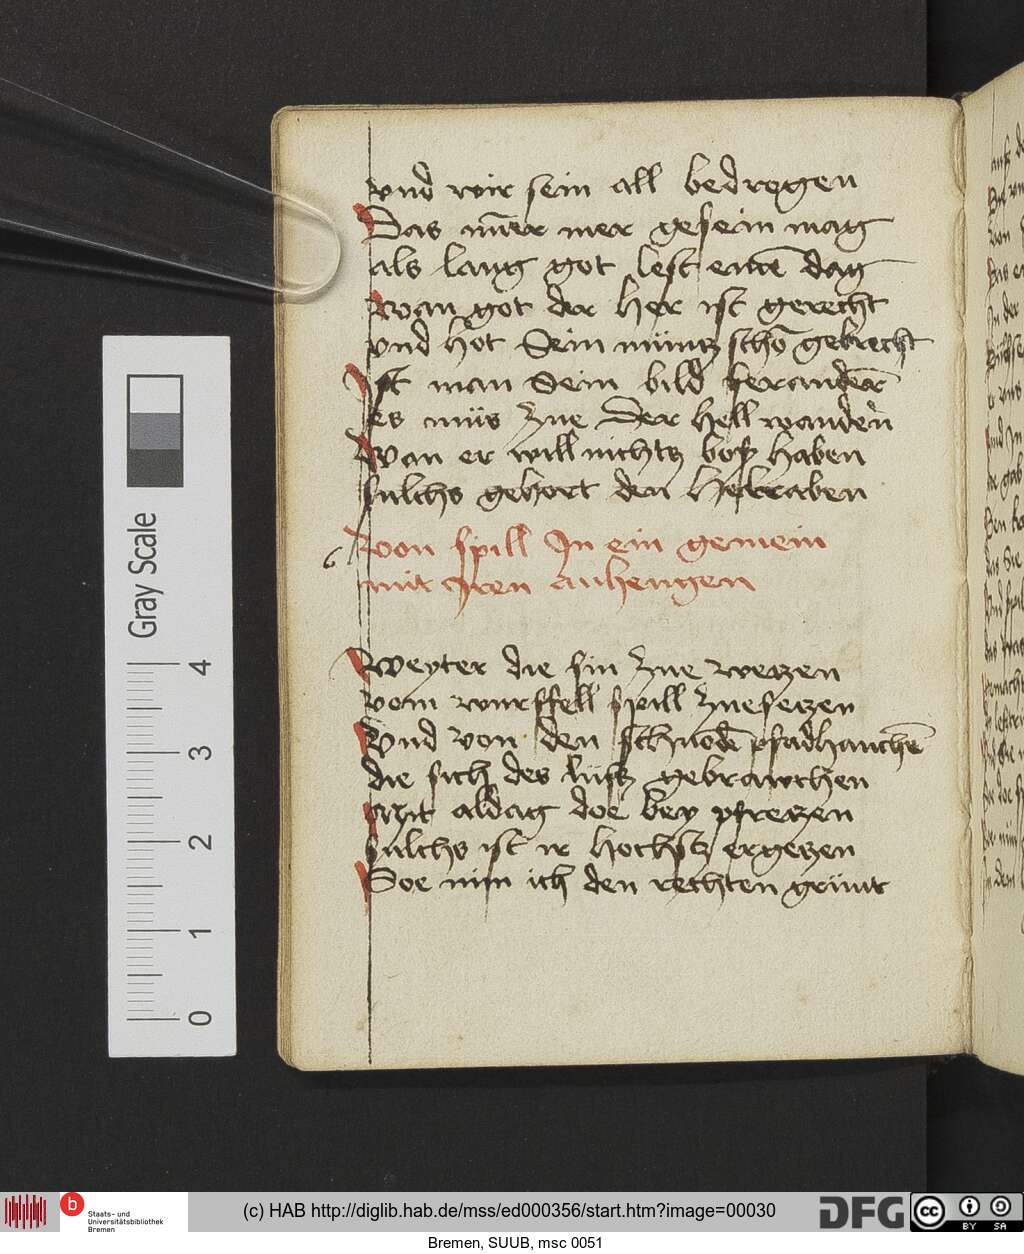 vnd wir sein all bedrogen
Das nim̄er mer gesein mag
als lang got lest eine͂ dag
wan got der her ist gerecht
vnd hot Sein müntz schō gebrecht
Ist man Sein bild feranderē
es müs zue der hell wanden
Wan er will nichtz boß haben
sulchs gehort den Helraben
6
von spill In ein gemein
mit Iren anhengen
Weyter die sin zue wetzen
vom wurffell spill zue setzen
Vnd von den schnode͂ pfadhauche͂
die sich des luftz gebrawchen
Mit aldag doe bey pfretzen
sulchs ist ir hochstz ergetzen
Soe nim ich den rechten grünt
Gray Scale
4
3
2
1
0
b
Staats- und
Universitätsbibliothek
Bremen
(c) HAB http://diglib.hab.de/mss/ed000356/start.htm?image=00030
DFG
cc
BY SA
Bremen, SUUB, msc 0051